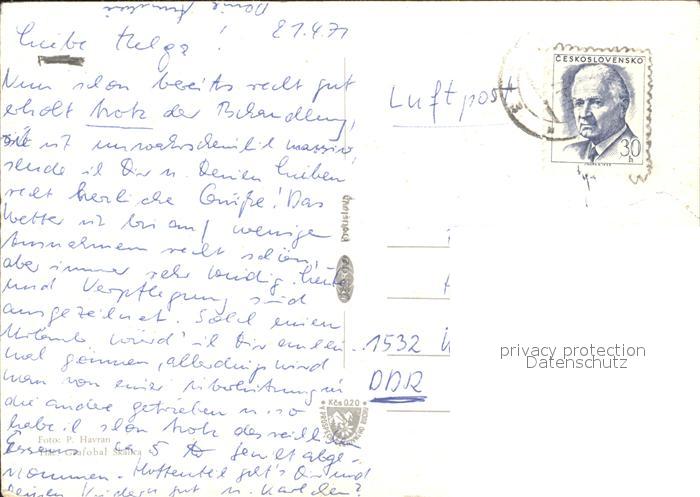 21.4.71
Liebe Helga!
Nun schon bereits recht gut
erholt trotz der Behandlung,
sie ist unwahrscheinlich massiv
sende ich Dir u. Deinen Lieben
recht herzliche Grüße! Das
Wetter ist bis auf wenige
Ausnahmen recht schön,
aber immer sehr windig.
und Verpflegung sind
ausgezeichnet. Solch einen
würd' ich Dir auch ein-
mal gönnen, allerdings wird
man von einer in
die andere getrieben u. so
habe ich schon trotz des reichl.
Essens ca 5 abge-
nommen. Hoffentlich geht's Dir und
Deinen Kindern gut u. Karlchen?
Foto: P. Havran
Tlač: Grafobal Skalica
Luftpost
ČESKOSLOVENSKO
30 h
1532
DDR
Kčs 0,20
privacy protection
Datenschutz